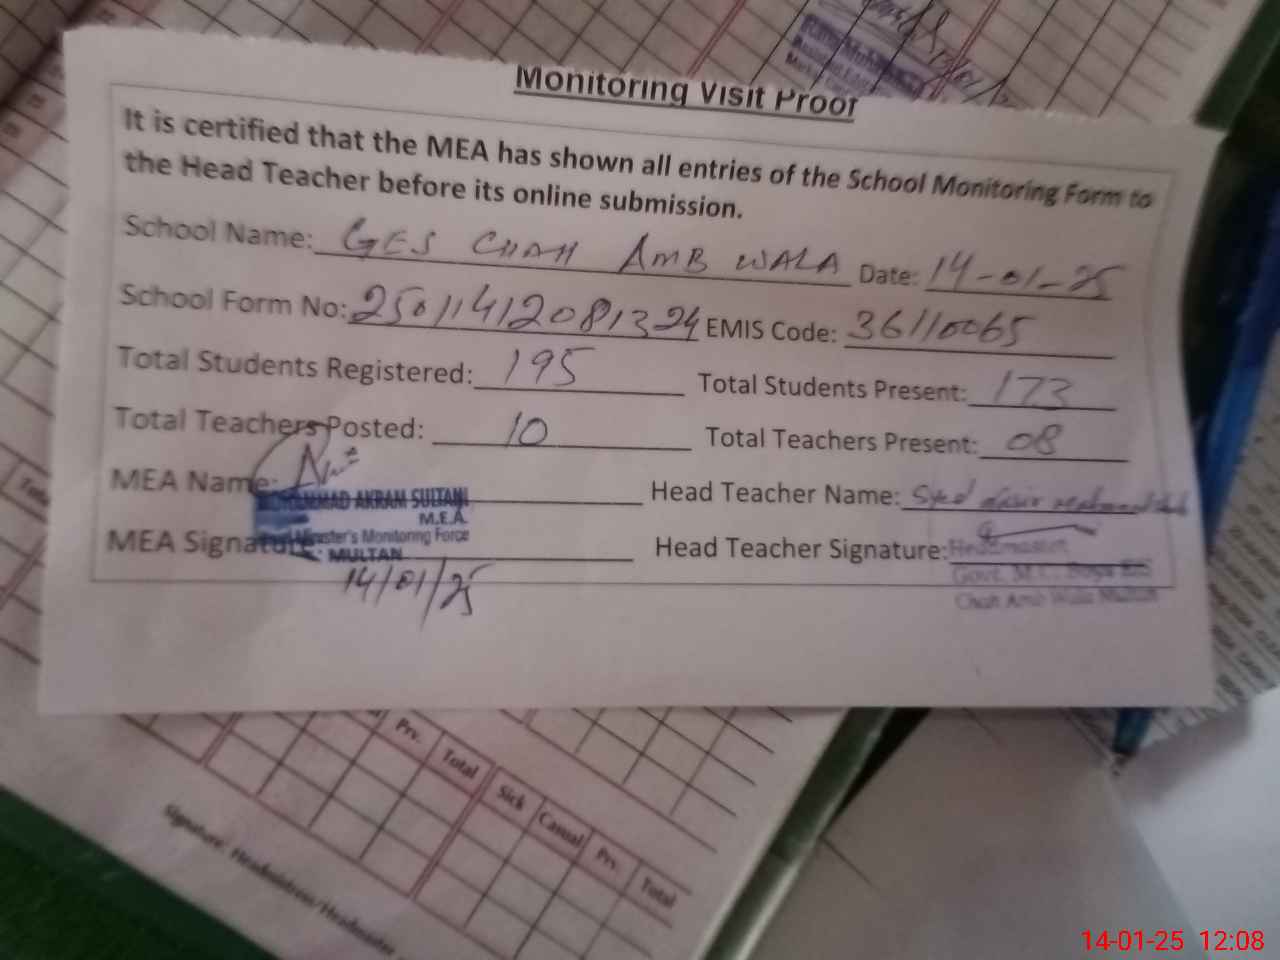 Monitoring Visit Proof
It is certified that the MEA has shown all entries of the School Monitoring Form to
the Head Teacher before its online submission.
School Name: GES CHAH AMB WALA Date: 14-01-25
School Form No: 25011412081324 EMIS Code: 36110065
Total Students Registered: 195 Total Students Present: 173
Total Teachers Posted: 10 Total Teachers Present: 08
MEA Name: Head Teacher Name: Syed
MUHAMMAD AKRAM SULTANI
M.E.A.
Minister's Monitoring Force
MEA Signature: MULTAN Head Teacher Signature:
Headmaster
Govt. M.C. Boys E/S
Chah Amb Wala Multan
14/01/25
Prv. Total Sick Casual Prv. Total
Signature: Headmistress/Headmaster
14-01-25 12:08